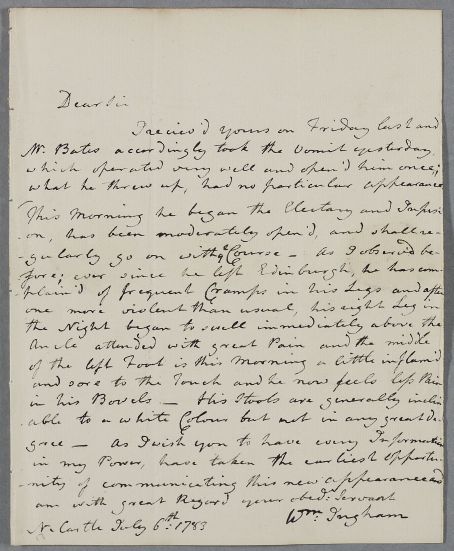 Dear Sir
I reciev'd yours on Friday last and
Mr. Bates accordingly took the Vomit yesterday,
which operated very well and open'd him once;
what he threw up, had no particular appearance
This Morning he began the Electary and Infusi
-on, has been moderately open'd, and shall re-
-gularly go on with ye Course - As I observ'd be-
fore; ever since he left Edinburgh, he has com-
-plain'd of frequent Cramps in his Legs and after
one more violent than usual, his right Leg in
the Night began to swell immediately above the
Ancle attended with great Pain and the middle
of the left Foot is this Morning a little inflam'd
and sore to the Touch and he now feels less Pain
in his Bowels - His Stools are generally inclin
able to a white Colour but not in any great De-
gree - As I wish you to have every Information
in my Power, have taken the earliest Opportu-
-nity of communicating this new appearance and
am with great Regard your obedt. Servant
Wm. Ingham
N. Castle July 6th. 1783